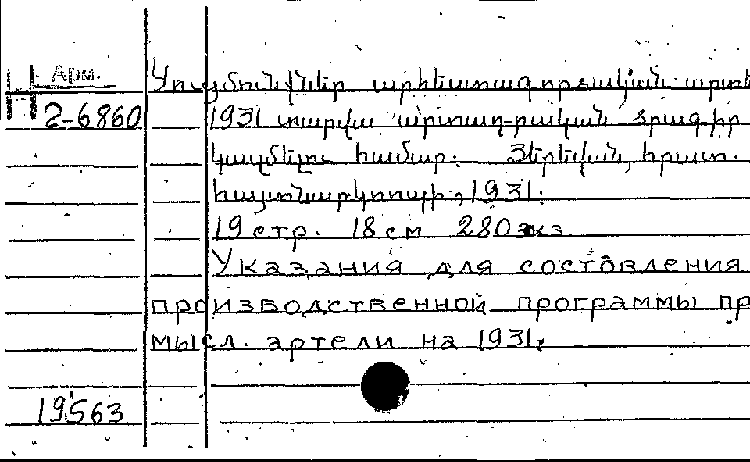 Арм.
П 2-6860
Ցուցմունքներ արհեստագործական արտել
1931 տարվա արտադրական ծրագիր
կազմելու համար. Յերեվան, հրատ.
հայսնարկոոպի, 1931.
19 стр. 18 см 280 экз.
Указания для состовления
производственной программы пр
мысл. артели на 1931.
19563